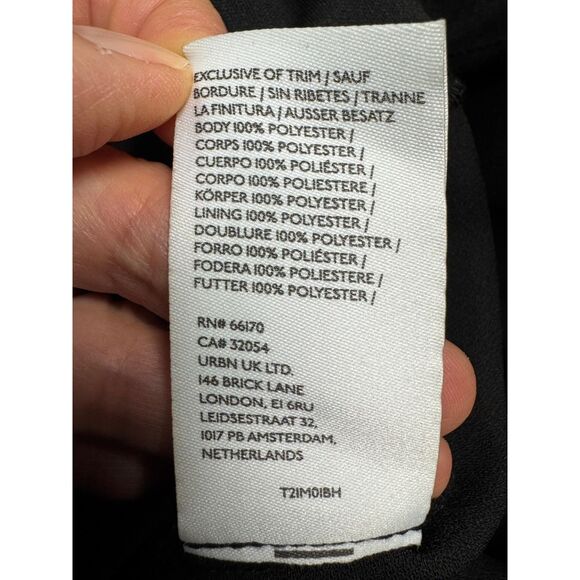 EXCLUSIVE OF TRIM / SAUF
BORDURE / SIN RIBETES / TRANNE
LA FINITURA / AUSSER BESATZ
BODY 100% POLYESTER /
CORPS 100% POLYESTER /
CUERPO 100% POLIÉSTER /
CORPO 100% POLIESTERE /
KÖRPER 100% POLYESTER /
LINING 100% POLYESTER /
DOUBLURE 100% POLYESTER /
FORRO 100% POLIÉSTER /
FODERA 100% POLIESTERE /
FUTTER 100% POLYESTER /
RN# 66170
CA# 32054
URBN UK LTD.
146 BRICK LANE
LONDON, E1 6RU
LEIDSESTRAAT 32,
1017 PB AMSTERDAM,
NETHERLANDS
T21M01BH